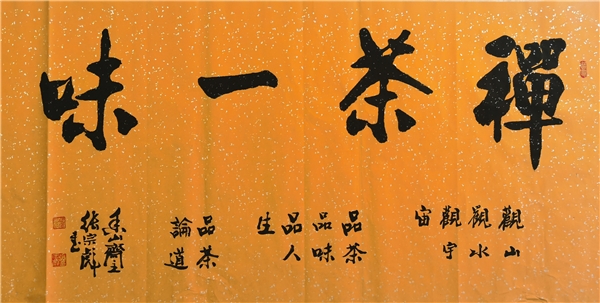 禪茶一味
觀山
觀水
觀宇
宙
品茶
品味
品人
生
品茶
論道
山齋主
張宗彪